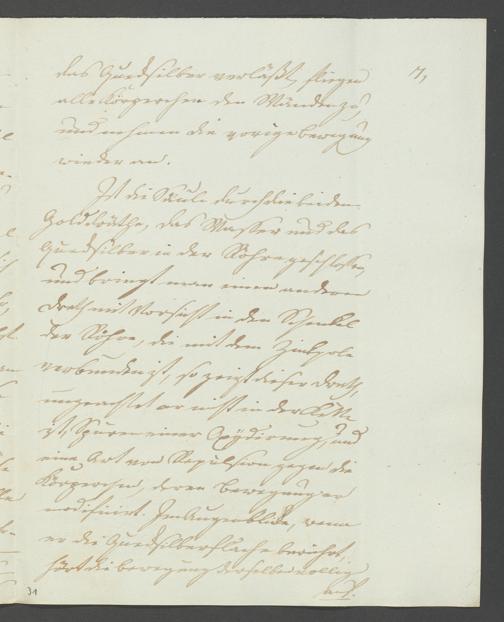 7,
das Quecksilber verläßt, fliegen
alle Körperchen den Wänden zu,
und nehmen die vorige bewegung
wieder an.
Ist die Säule durch die beiden
Golddräthe, das Wasser und das
Quecksilber in der Röhre geschlossen,
und bringt man einen anderen
Drath mit Vorsicht in den Schenkel
der Röhre, die mit dem Zinkpole
verbunden ist, so zeigt dieser Drath,
ungeachtet er nicht in der Kette
ist, Spuren einer Oxydirung, und
eine Art von Repulsion gegen die
Körperchen, deren bewegung er
modificirt. Im Augenblicke, wenn
er die Quecksilberfläche berührt,
hört die bewegung derselben völlig
auf.
31